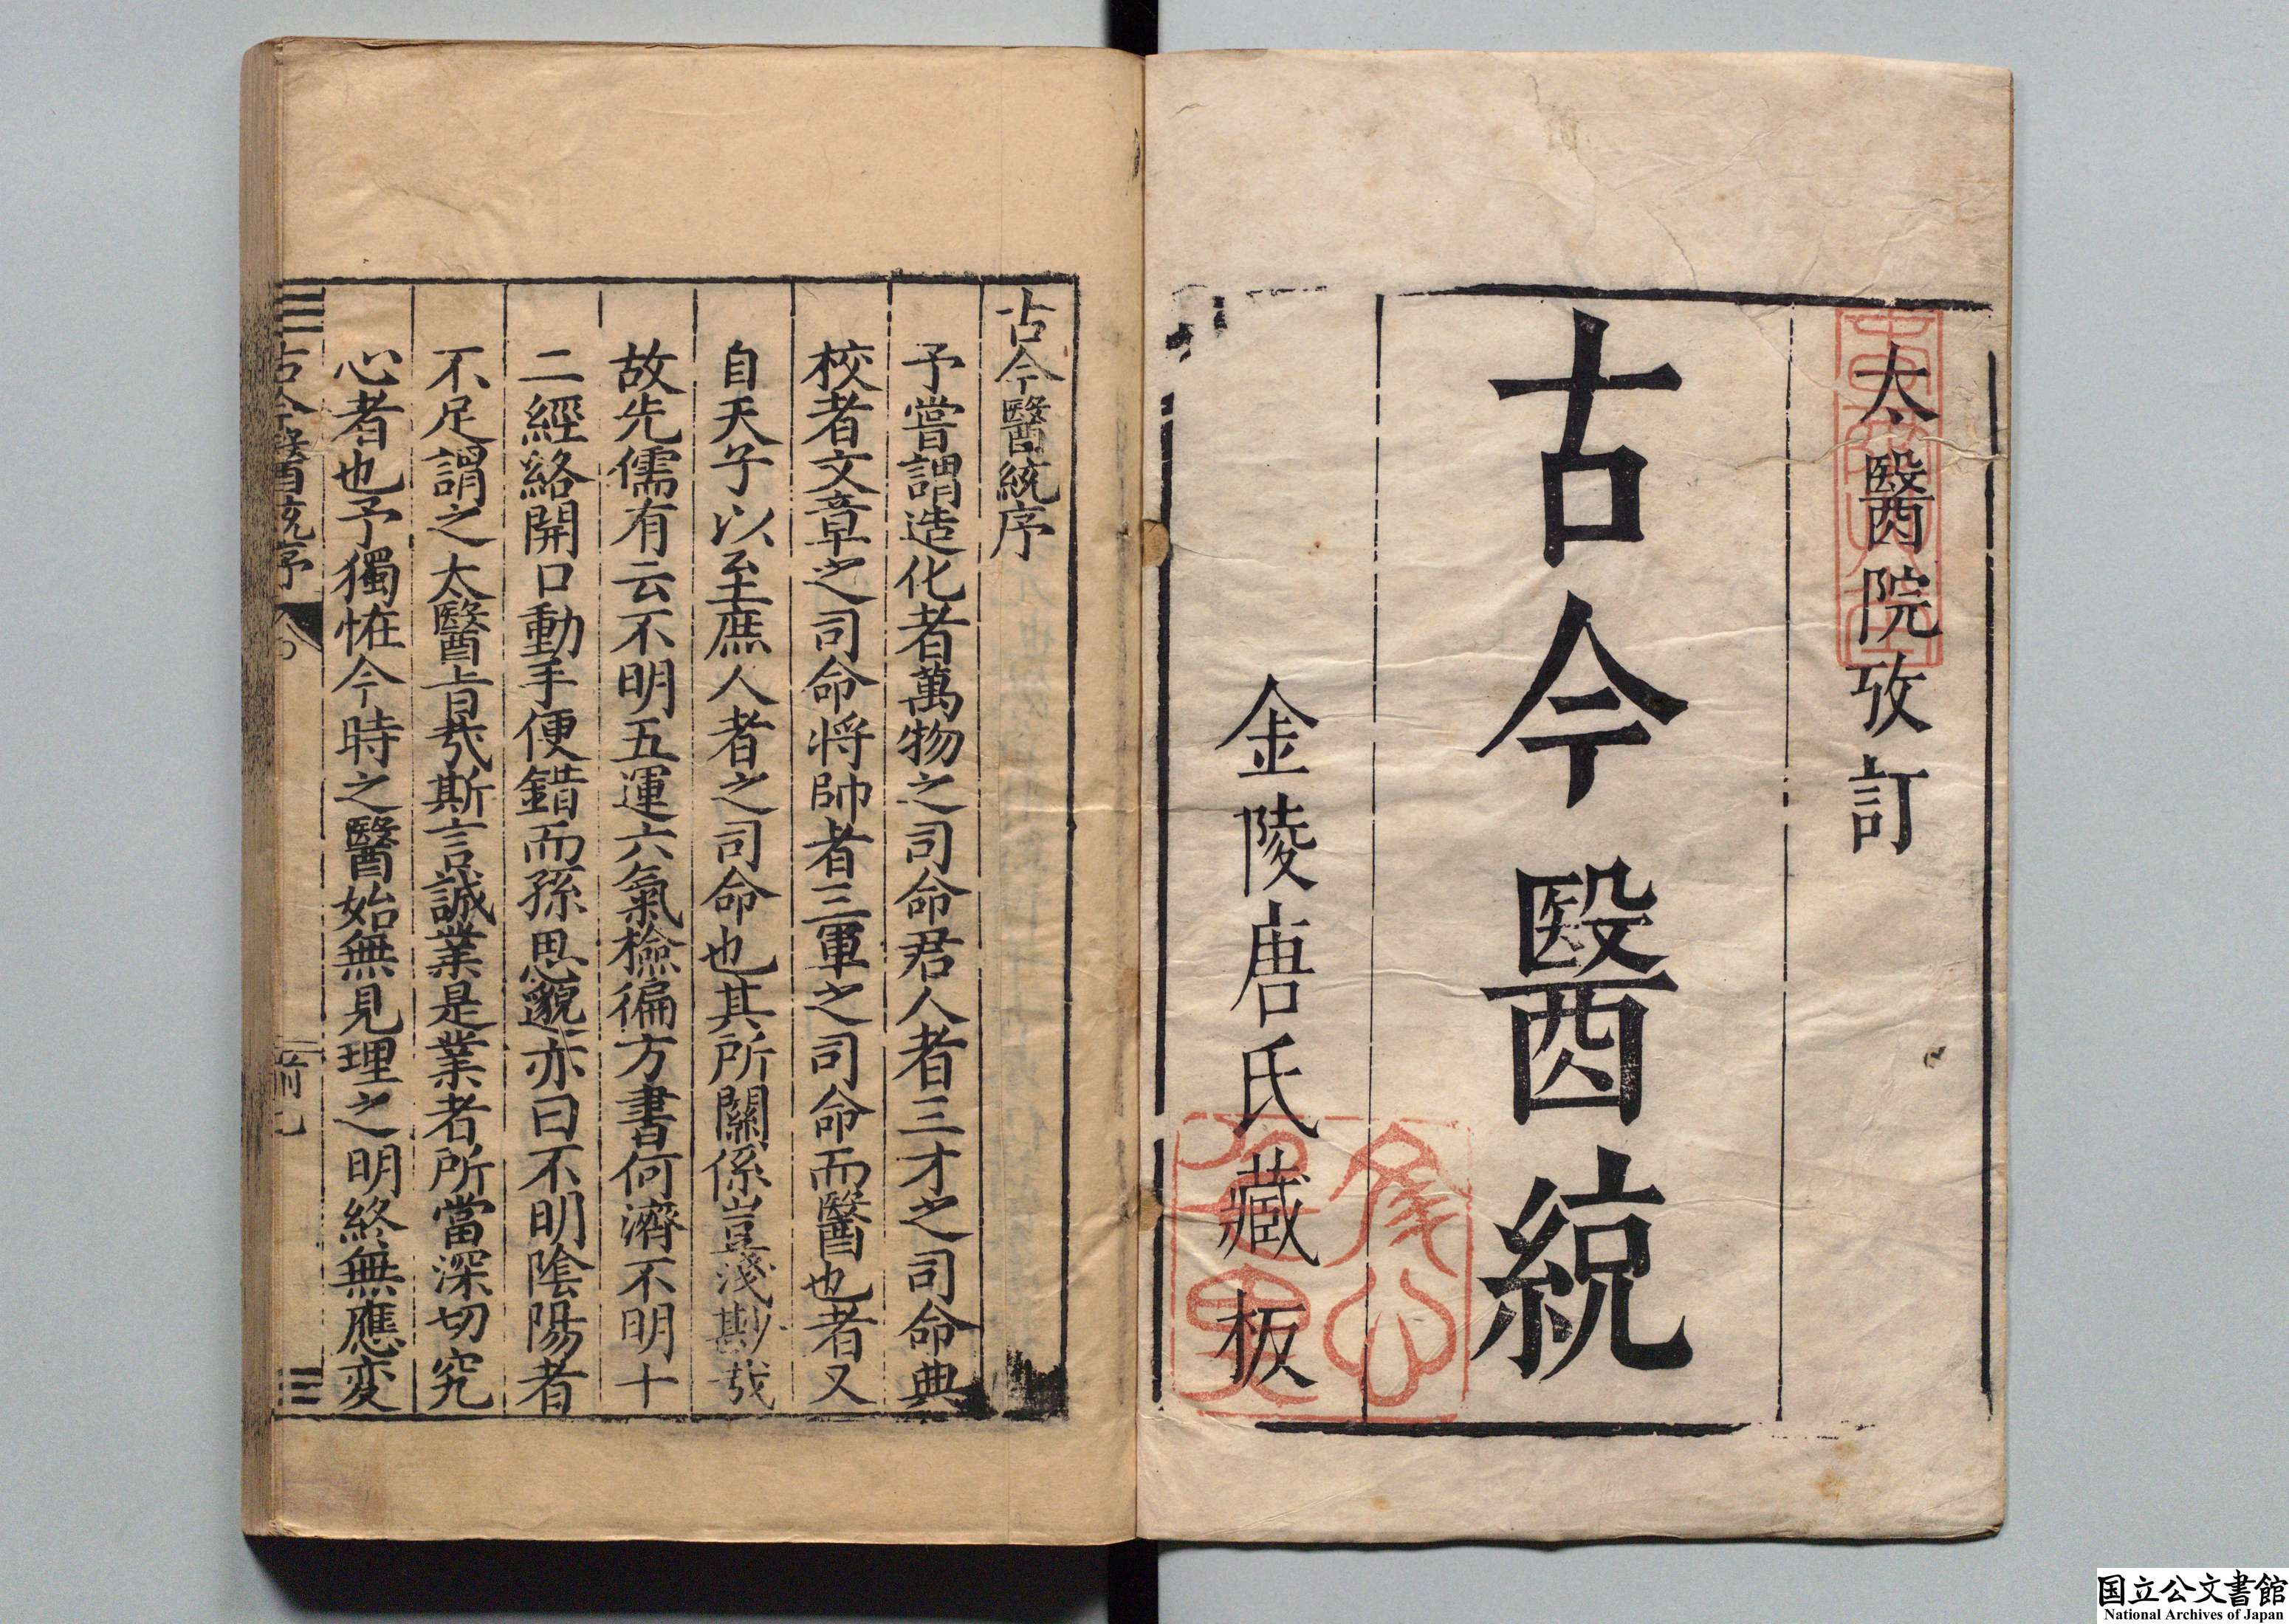 太醫院攷訂
古今醫統
金陵唐氏藏板
古今醫統序
予嘗謂造化者萬物之司命君人者三才之司命典
校者文章之司命将帥者三軍之司命而醫也者又
自天子以至庶人者之司命也其所關係豈淺尠哉
故先儒有云不明五運六氣檢徧方書何濟不明十
二經絡開口動手便錯而孫思邈亦曰不明陰陽者
不足謂之太醫旨哉斯言誠業是業者所當深切究
心者也予獨恠今時之醫始無見理之明終無應変
古今醫統序
国立公文書館
National Archives of Japan